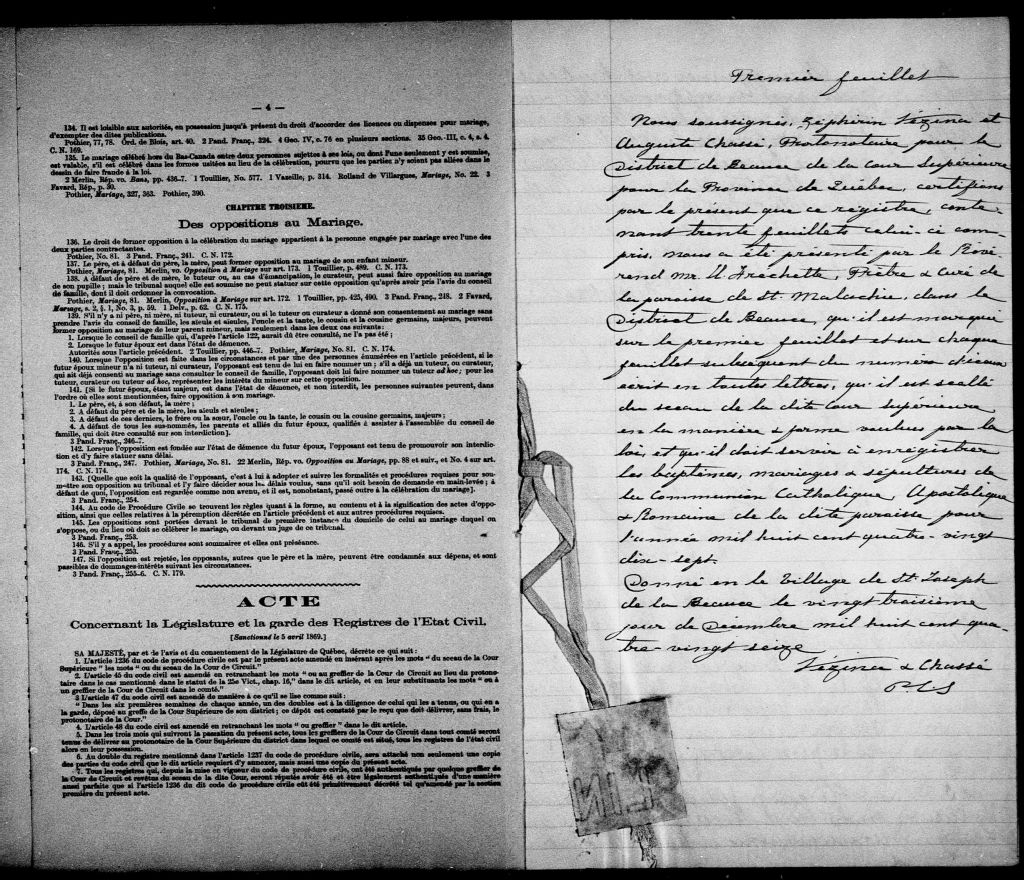 — 4 —
134. Il est loisible aux autorités, en possession jusqu'à présent du droit d'accorder des licences ou dispenses pour mariage,
d'exempter des dites publications.
Pothier, 77, 78. Ord. de Blois, art. 40. 2 Pand. Franç., 324. 4 Geo. IV, c. 76 en plusieurs sections. 35 Geo. III, c. 4, s. 4.
C. N. 169.
135. Le mariage célébré hors du Bas-Canada entre deux personnes sujettes à ses lois, ou dont l'une seulement y est soumise,
est valable, s'il est célébré dans les formes usitées au lieu de la célébration, pourvu que les parties n'y soient pas allées dans le
dessin de faire fraude à la loi.
2 Merlin, Rép. vo. Bans, pp. 436-7. 1 Touillier, No. 577. 1 Vazeille, p. 314. Rolland de Villargues, Mariage, No. 22. 3
Favard, Rép., p. 30.
Pothier, Mariage, 327, 363. Pothier, 390.
CHAPITRE TROISIEME.
Des oppositions au Mariage.
136. Le droit de former opposition à la célébration du mariage appartient à la personne engagée par mariage avec l'une des
deux parties contractantes.
Pothier, No. 81. 3 Pand. Franç., 241. C. N. 172.
137. Le père, et à défaut du père, la mère, peut former opposition au mariage de son enfant mineur.
Pothier, Mariage, 81. Merlin, vo. Opposition à Mariage sur art. 173. 1 Touillier, p. 489. C. N. 173.
138. A défaut de père et de mère, le tuteur ou, au cas d'émancipation, le curateur, peut aussi faire opposition au mariage
de son pupille; mais le tribunal auquel elle est soumise ne peut statuer sur cette opposition qu'après avoir pris l'avis du conseil
de famille, dont il doit ordonner la convocation.
Pothier, Mariage, 81. Merlin, Opposition à Mariage sur art. 172. 1 Touillier, pp. 425, 490. 3 Pand. Franç., 248. 2 Favard,
Mariage, s. 2, §. 1, No. 3, p. 59. 1 Delv., p. 62. C. N. 175.
139. S'il n'y a ni père, ni mère, ni tuteur, ni curateur, ou si le tuteur ou curateur a donné son consentement au mariage sans
prendre l'avis du conseil de famille, les aïeuls et aïeules, l'oncle et la tante, le cousin et la cousine germains, majeurs, peuvent
former opposition au mariage de leur parent mineur, mais seulement dans les deux cas suivants:
1. Lorsque le conseil de famille qui, d'après l'article 122, aurait dû être consulté, ne l'a pas été;
2. Lorsque le futur époux est dans l'état de démence.
Autorités sous l'article précédent. 2 Touillier, pp. 446-7. Pothier, Mariage, No. 81. C. N. 174.
140. Lorsque l'opposition est faite dans les circonstances et par une des personnes énumérées en l'article précédent, si le
futur époux mineur n'a ni tuteur, ni curateur, l'opposant est tenu de lui en faire nommer un; s'il a déjà un tuteur, ou curateur,
qui ait déjà consenti au mariage sans consulter le conseil de famille, l'opposant doit lui faire nommer un tuteur ad hoc; pour les
tuteur, curateur ou tuteur ad hoc, représenter les intérêts du mineur sur cette opposition.
141. [Si le futur époux, étant majeur, est dans l'état de démence, et non interdit, les personnes suivantes peuvent, dans
l'ordre où elles sont mentionnées, faire opposition à son mariage.
1. Le père, et, à son défaut, la mère;
2. A défaut du père et de la mère, les aïeuls et aïeules;
3. A défaut de ces derniers, le frère ou la sœur, l'oncle ou la tante, le cousin ou la cousine germains, majeurs;
4. A défaut de tous les sus-nommés, les parents et alliés du futur époux, qualifiés à assister à l'assemblée du conseil de
famille, qui doit être consulté sur son interdiction].
3 Pand. Franç., 246-7.
142. Lorsque l'opposition est fondée sur l'état de démence du futur époux, l'opposant est tenu de promouvoir son interdic-
tion et d'y faire statuer sans délai.
3 Pand. Franç., 247. Pothier, Mariage, No. 81. 22 Merlin, Rép. vo. Opposition au Mariage, pp. 88 et suiv., et No. 4 sur art.
174. C. N. 174.
143. [Quelle que soit la qualité de l'opposant, c'est à lui à adopter et suivre les formalités et procédures requises pour sou-
mettre son opposition au tribunal et l'y faire décider sous les délais voulus, sans qu'il soit besoin de demande en main-levée; à
défaut de quoi, l'opposition est regardée comme non avenu, et il est, nonobstant, passé outre à la célébration du mariage].
3 Pand. Franç., 254.
144. Au Code de Procédure Civile se trouvent les règles quant à la forme, au contenu et à la signification des actes d'oppo-
sition, ainsi que celles relatives à la péremption décrétée en l'article précédent et aux autres procédures requises.
145. Les oppositions sont portées devant le tribunal de première instance du domicile de celui au mariage duquel on
s'oppose, ou du lieu où doit se célébrer le mariage, ou devant un juge de ce tribunal.
3 Pand. Franç., 253.
146. S'il y a appel, les procédures sont sommaires et elles ont préséance.
3 Pand. Franç., 253.
147. Si l'opposition est rejetée, les opposants, autres que le père et la mère, peuvent être condamnés aux dépens, et sont
passibles de dommages-intérêts suivant les circonstances.
3 Pand. Franç., 255-6. C. N. 179.
ACTE
Concernant la Législature et la garde des Registres de l'Etat Civil.
[Sanctionné le 5 avril 1869.]
SA MAJESTÉ, par et de l'avis et du consentement de la Législature de Québec, décrète ce qui suit:
1. L'article 1236 du code de procédure civile est par le présent acte amendé en insérant après les mots " du sceau de la Cour
Supérieure " les mots " ou du sceau de la Cour de Circuit."
2. L'article 45 du code civil est amendé en retranchant les mots " ou au greffier de la Cour de Circuit au lieu du protono-
taire dans le cas mentionné dans le statut de la 25e Vict., chap. 16," dans le dit article, et en leur substituants les mots " ou à
un greffier de la Cour de Circuit dans le comté."
3 L'article 47 du code civil est amendé de manière à ce qu'il se lise comme suit:
" Dans les six premières semaines de chaque année, un des doubles est à la diligence de celui qui les a tenus, ou qui en a
la garde, déposé au greffe de la Cour Supérieure de son district; ce dépôt est constaté par le reçu que doit délivrer, sans frais, le
protonotaire de la Cour."
4. L'article 48 du code civil est amendé en retranchant les mots " ou greffier " dans le dit article.
5. Dans les trois mois qui suivront la passation du présent acte, tous les greffiers de la Cour de Circuit dans tout comté seront
tenus de délivrer au protonotaire de la Cour Supérieure du district dans lequel ce comté est situé, tous les registres de l'état civil
alors en leur possession.
6. Au double du registre mentionné dans l'article 1237 du code de procédure civile, sera attaché non seulement une copie
des parties du code civil que le dit article requiert d'y annexer, mais aussi une copie du présent acte.
7. Tous les registres qui, depuis la mise en vigueur du code de procédure civile, ont été authentiqués par quelque greffier de
la Cour de Circuit et revêtus du sceau de la dite Cour, seront réputés avoir été et être légalement authentiqués d'une manière
aussi parfaite que si l'article 1236 du dit code de procédure civile eût été primitivement décrété tel qu'amendé par la section
première du présent acte.
Premier feuillet
Nous soussignés, Zéphirin Vézina et
Auguste Chassé, Protonotaire pour le
District de Beauce de la Cour Supérieure
pour la Province de Québec, certifions
par le présent que ce régistre, conte-
nant trente feuillets celui-ci com-
pris, nous a été présenté par le Révé-
rand Mr. Frechette, Prêtre & Curé de
la paroisse de St. Malachie, dans le
District de Beauce, qu'il est marqué
sur le premier feuillet et sur chaque
feuillet subséquent du numéro d'iceux
ecrit en toutes lettres, qu'il est scellé
du sceau de la dite Cour Supérieure
en la manière & forme voulues par la
loi, et qu'il doit servir à enregistrer
les baptêmes, mariages & sépultures de
la Communion Catholique, Apostolique
& Romaine de la dite paroisse pour
l'année mil huit cent quatre-vingt
dix-sept.
Donné en le Village de St. Joseph
de la Beauce le vingt troisième
jour de Décembre mil huit cent qua-
tre-vingt seize
Vézina & Chassé
PCS